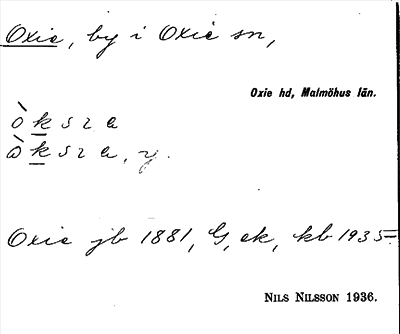 Oxie, by i Oxie sn,
Oxie hd, Malmöhus län.
Oxie jb 1881, G, ek, kb 1935=
NILS NILSSON 1936.